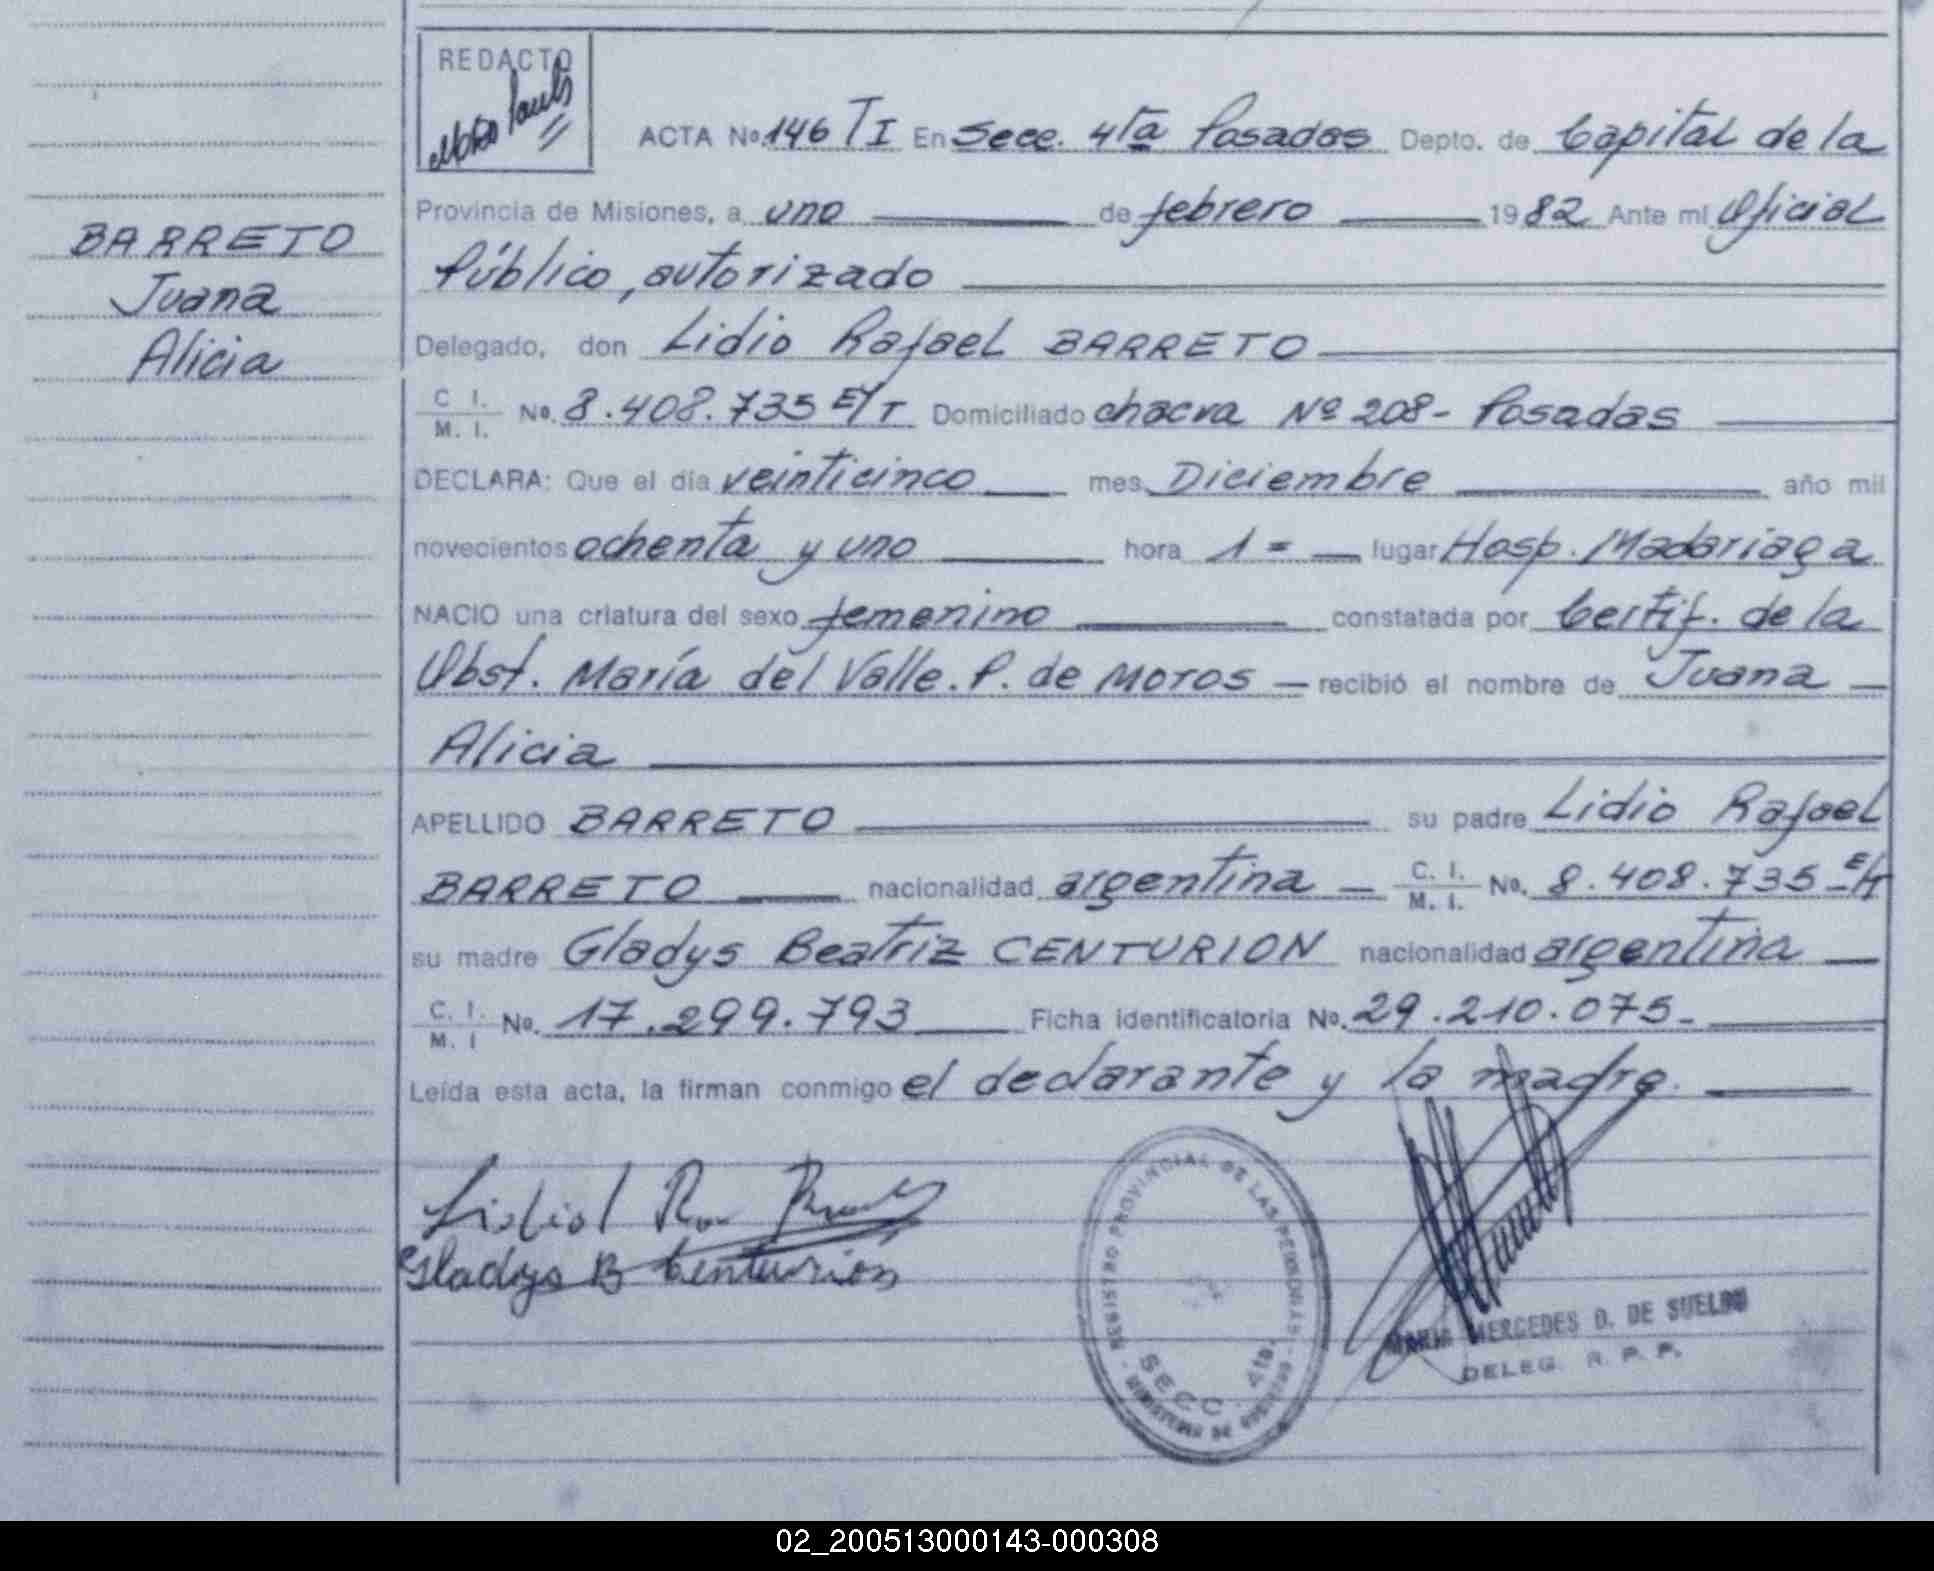 REDACTO
ACTA No. 146 TI En Secc. 4ta Posadas Depto. de Capital de la
Provincia de Misiones, a uno de febrero 1982 Ante mi Oficial
Público, autorizado
BARRETO
Juana
Alicia
Delegado, don Lidio Rafael BARRETO
C. I. / M. I. No. 8.408.735 E/T Domiciliado chacra Nº 208- Posadas
DECLARA: Que el día veinticinco mes Diciembre año mil
novecientos ochenta y uno hora 1 = lugar Hosp. Madariaga
NACIO una criatura del sexo femenino constatada por Certif. de la
Obst. María del Valle. P. de MOTOS recibió el nombre de Juana
Alicia
APELLIDO BARRETO su padre Lidio Rafael
BARRETO nacionalidad argentina C. I. / M. I. No. 8.408.735 E/T
su madre Gladys Beatriz CENTURION nacionalidad argentina
C. I. / M. I No. 17.299.793 Ficha identificatoria No. 29.210.075-
Leída esta acta, la firman conmigo el declarante y la madre.
Gladys B Centurión
REGISTRO PROVINCIAL DE LAS PERSONAS - MINISTERIO DE GOBIERNO -
SECC. 4ta.
MARIA MERCEDES D. DE SUELDO
DELEG. R. P. P.
02_200513000143-000308